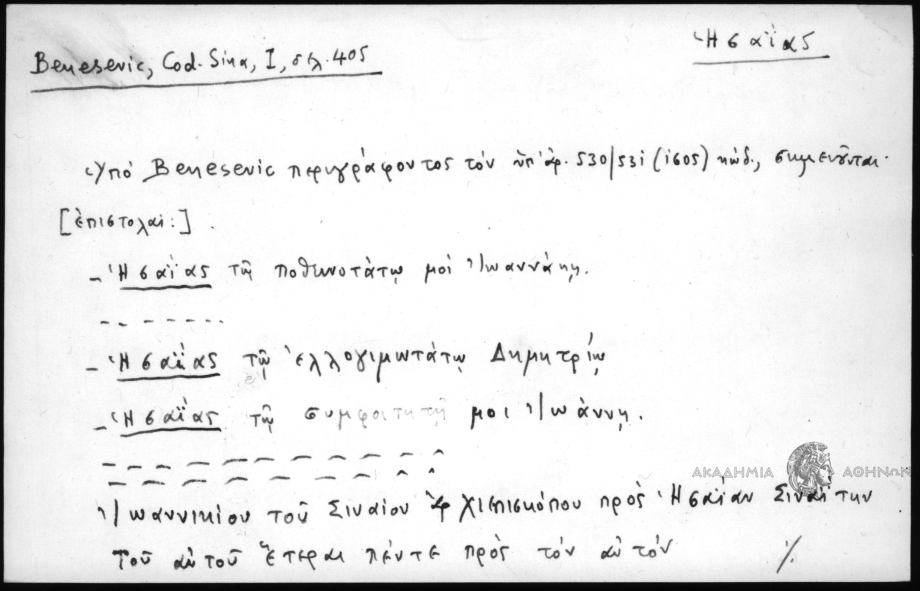 Ἡσαΐας
Benesevic, Cod. Sina, I, σελ. 405
Ὑπό Benesevic περιγράφοντος τόν ὑπ' ἀρ. 530/531 (1605) κώδ., σημειοῦνται·
[ἐπιστολαί:]
- Ἡσαΐας τῷ ποθεινοτάτῳ μοί Ἰωαννάκῃ.
- Ἡσαΐας τῷ ἐλλογιμωτάτῳ Δημητρίῳ
- Ἡσαΐας τῷ συμφοιτητῇ μοι Ἰωάννῃ.
ΑΚΑΔΗΜΙΑ ΑΘΗΝΩΝ
Ἰωαννικίου τοῦ Σιναίου ἀρχιεπισκόπου πρὸς Ἡσαΐαν Σιναΐτην
Τοῦ αὐτοῦ ἕτεραι πέντε πρὸς τὸν αὐτόν ./.